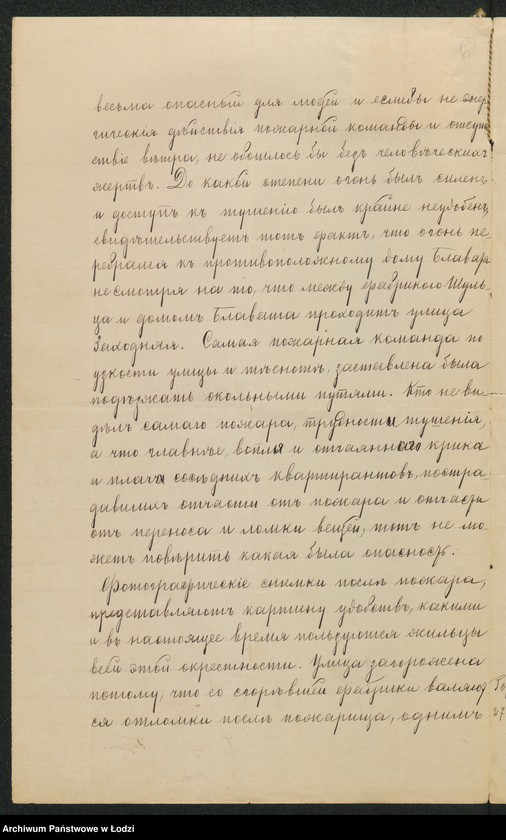 весьма опасный для людей и если бы не энер-
гическія дѣйствія пожарной команды и отсут
ствіе вѣтра, не обошлось бы безъ человѣческихъ
жертвъ. До какой степени огонь былъ силенъ
и доступъ къ тушенію былъ крайне неудобенъ,
свидѣтельствуетъ тотъ фактъ, что огонь пе-
ребрался къ противоположному дому Блават
несмотря на то, что между фабрикою Шуль-
ца и домомъ Блавата проходитъ улица
Заходняя. Самая пожарная команда по
узкости улицы и тѣснотѣ, заставлена была
подъѣзжать окольными путями. Кто не ви-
дѣлъ самаго пожара, трудности тушенія,
а что главнѣе, вопля и отчаяннаго крика
и плача сосѣднихъ квартирантовъ, постра-
давшихъ отчасти отъ пожара и отчасти
отъ переноса и ломки вещей, тотъ не мо-
жетъ повѣрить какая была опасность.
Фотографическіе снимки послѣ пожара,
представляютъ картину удобствъ, какими
и въ настоящее время пользуются жильцы
всей этой окрестности. Улица загорожена
потому, что со сгорѣвшей фабрики валяют
ся отломки послѣ пожарища, однимъ
Archiwum Państwowe w Łodzi